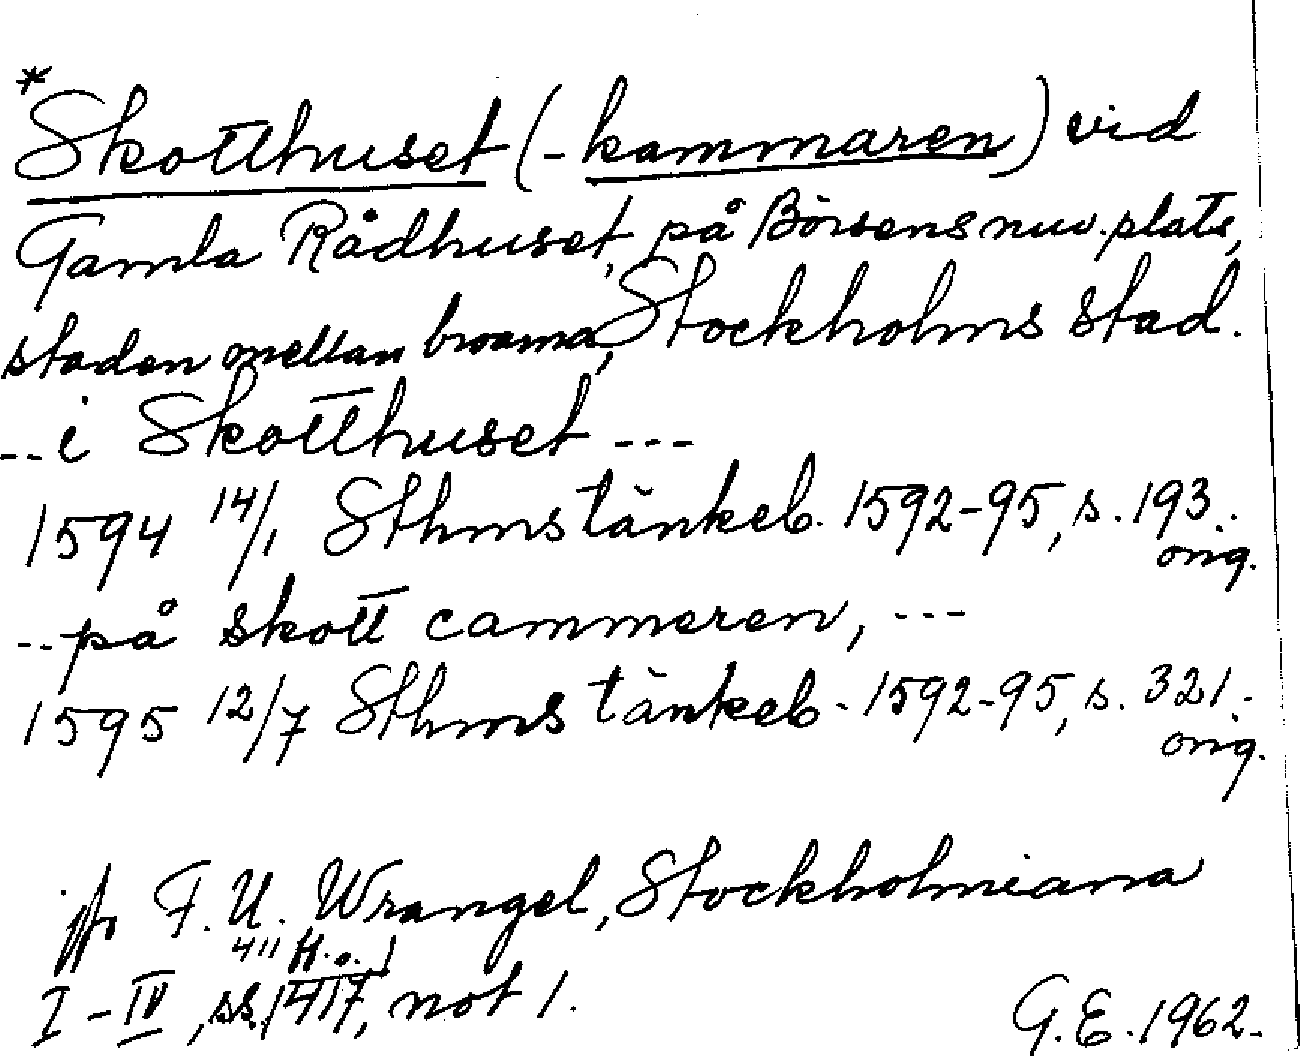 *
Skotthuset (-kammaren) vid
Gamla Rådhuset, på Börsens nuv. plats,
staden mellan broarna, Stockholms stad.
-- i Skotthuset ---
1594 14/1 Sthms tänkeb. 1592-95, s. 193..
orig.
-- på skott cammeren, ---
1595 12/7 Sthms tänkeb. 1592-95, s. 321..
orig.
jfr F. U. Wrangel, Stockholmiana
411 H.o.
I-IV, ss. 417, not 1.
G.E. 1962.